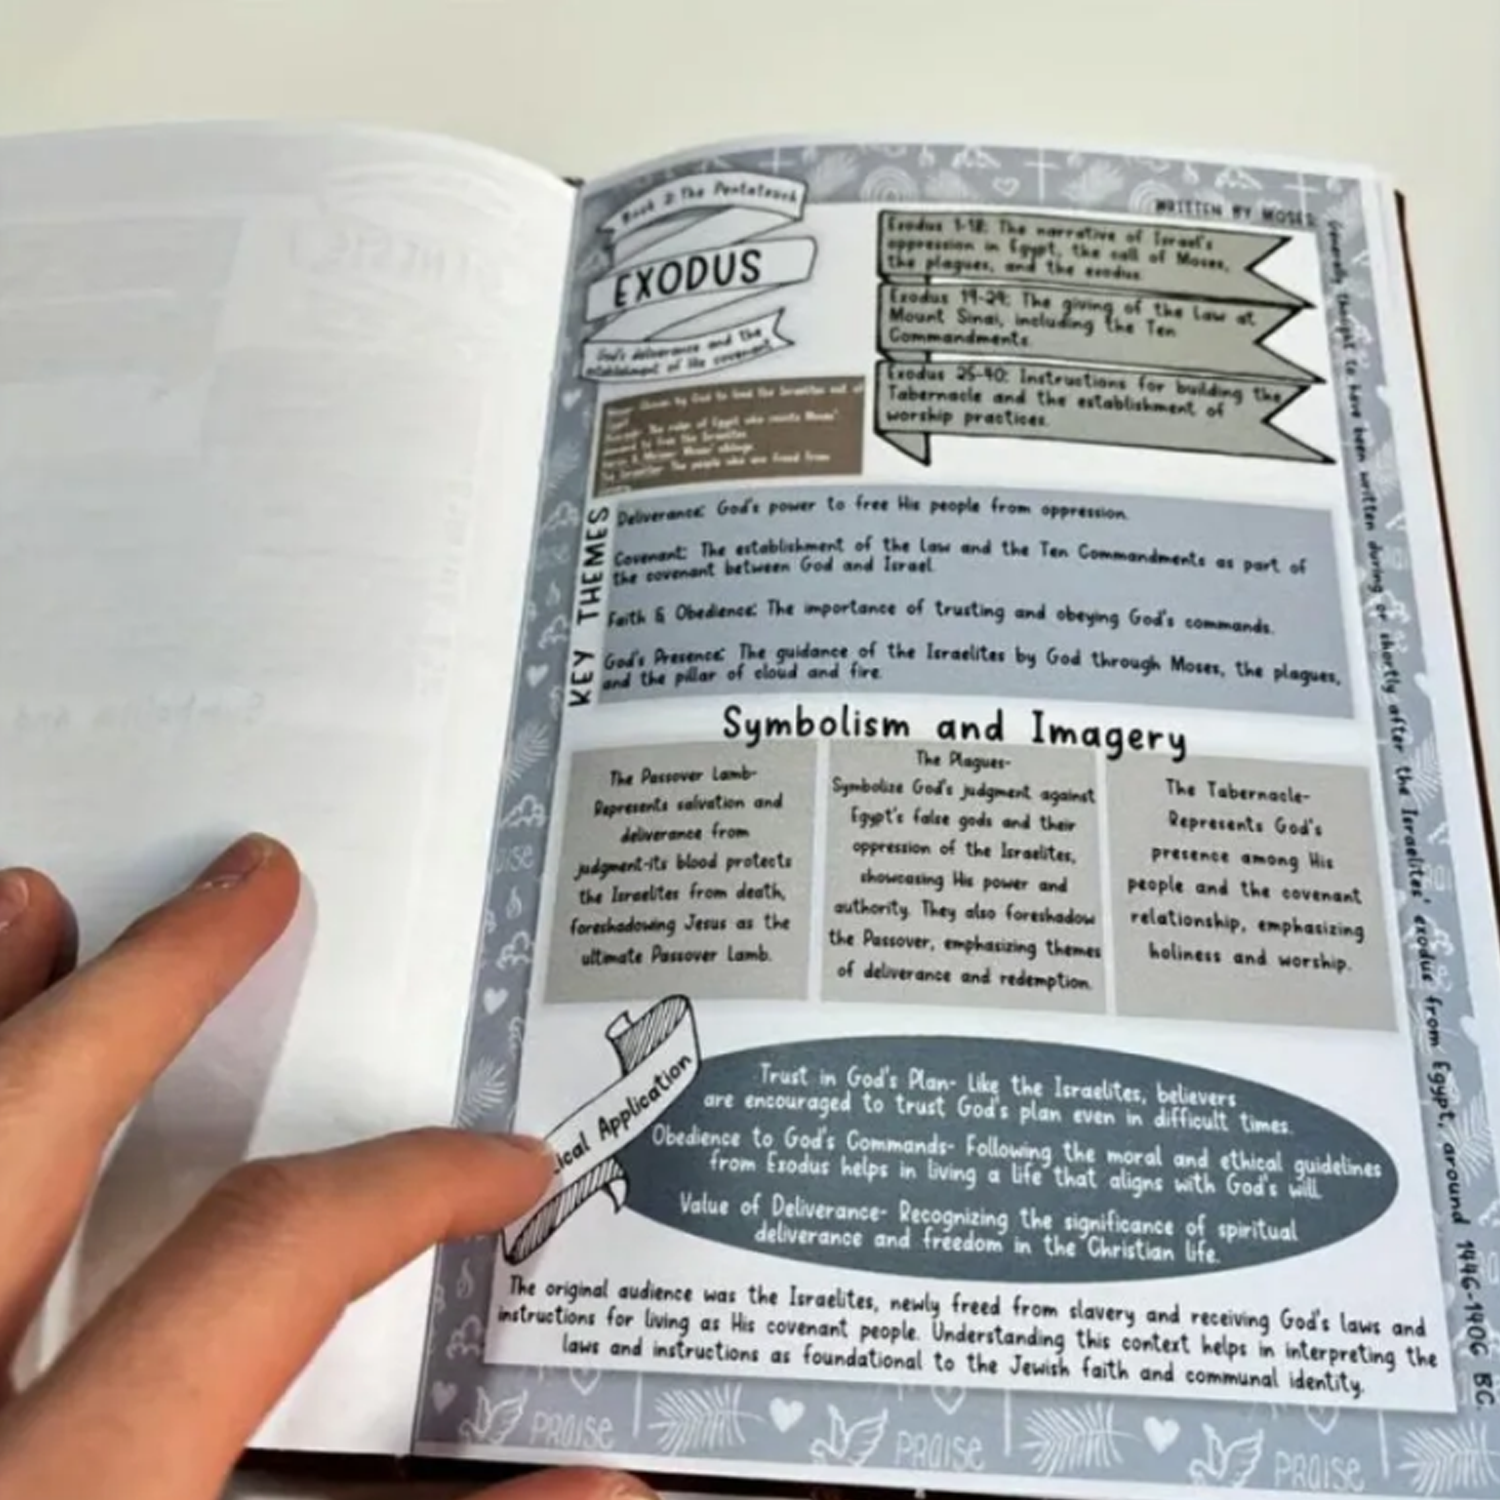 Book 2: The Pentateuch
EXODUS
God's deliverance and the
establishment of His covenant
WRITTEN BY MOSES:
Generally thought to have been written during or shortly after the Israelites' exodus from Egypt, around 1446-1406 BC.
Exodus 1-18: The narrative of Israel's
oppression in Egypt, the call of Moses,
the plagues, and the exodus
Exodus 19-24: The giving of the Law at
Mount Sinai, including the Ten
Commandments.
Exodus 25-40: Instructions for building the
Tabernacle and the establishment of
worship practices.
Moses: Chosen by God to lead the Israelites out of
Egypt.
Pharaoh: The ruler of Egypt who resists Moses'
demand to free the Israelites
Moses' siblings.
The Israelites: The people who are freed from
KEY THEMES
Deliverance: God's power to free His people from oppression.
Covenant: The establishment of the Law and the Ten Commandments as part of
the covenant between God and Israel.
Faith & Obedience: The importance of trusting and obeying God's commands.
God's Presence: The guidance of the Israelites by God through Moses, the plagues,
and the pillar of cloud and fire.
Symbolism and Imagery
The Passover Lamb-
Represents salvation and
deliverance from
judgment-its blood protects
the Israelites from death,
foreshadowing Jesus as the
ultimate Passover Lamb.
The Plagues-
Symbolize God's judgment against
Egypt's false gods and their
oppression of the Israelites,
showcasing His power and
authority. They also foreshadow
the Passover, emphasizing themes
of deliverance and redemption.
The Tabernacle-
Represents God's
presence among His
people and the covenant
relationship, emphasizing
holiness and worship.
ical Application
Trust in God's Plan- Like the Israelites, believers
are encouraged to trust God's plan even in difficult times.
Obedience to God's Commands- Following the moral and ethical guidelines
from Exodus helps in living a life that aligns with God's will.
Value of Deliverance- Recognizing the significance of spiritual
deliverance and freedom in the Christian life.
The original audience was the Israelites, newly freed from slavery and receiving God's laws and
instructions for living as His covenant people. Understanding this context helps in interpreting the
laws and instructions as foundational to the Jewish faith and communal identity.
PRAISE
PRAISE
PRAISE